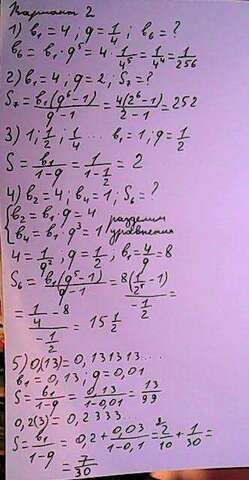 Вариант 2
1) b₁ = 4; q = 1/4; b₆ = ?
b₆ = b₁ · q⁵ = 4 · 1/4⁵ = 1/4⁴ = 1/256
2) b₁ = 4; q = 2; S₇ = ?
S₇ = b₁(q⁶-1)/q-1 = 4(2⁶-1)/2-1 = 252
3) 1; 1/2; 1/4 ... b₁ = 1; q = 1/2
S = b₁/1-q = 1/1-1/2 = 2
4) b₂ = 4; b₄ = 1; S₆ = ?
{b₂ = b₁ · q = 4 разделим
b₄ = b₁ q³ = 1) уравнения
4 = 1/q²; q = 1/2; b₁ = 4/q = 8
S₆ = b₁(q⁵-1)/q-1 = 8(1/2⁵-1)/-1/2 =
= 1/4-8/-1/2 = 15 1/2
5) 0,(13) = 0,131313...
b₁ = 0,13; q = 0,01
S = b₁/1-q = 0,13/1-0,01 = 13/99
0,2(3) = 0,2333...
S = b₁/1-q = 0,2 + 0,03/1-0,1 = 2/10 + 1/30 =
= 7/30